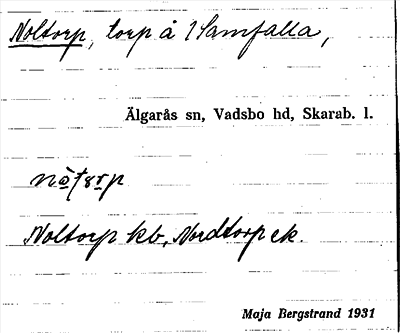 Noltorp, torp å 1 Samfalla,
Älgarås sn, Vadsbo hd, Skarab. l.
Noltorp kb, Nordtorp ek.
Maja Bergstrand 1931